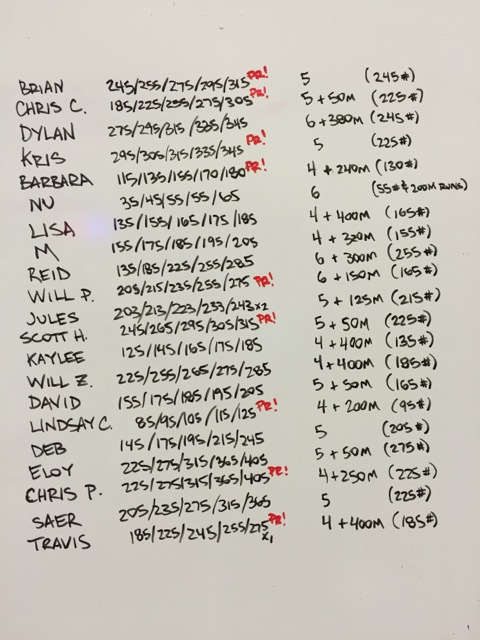 BRIAN 245/255/275/295/315 PR! 5 (245#)
CHRIS C. 185/225/255/275/305 PR! 5 + 50M (225#)
DYLAN 275/295/315/335/345 6 + 380M (245#)
KRIS 295/305/315/335/345 PR! 5 (225#)
BARBARA 115/135/155/170/180 PR! 4 + 240M (130#)
NU 35/45/55/55/65 6 (55# & 200M RUNS)
LISA 135/155/165/175/185 4 + 400M (165#)
M 155/175/185/195/205 4 + 320M (155#)
REID 135/185/225/255/285 6 + 300M (255#)
WILL P. 205/215/235/255/275 PR! 6 + 150M (165#)
JULES 203/213/223/233/243x2 5 + 125M (215#)
SCOTT H. 245/265/295/305/315 PR! 5 + 50M (225#)
KAYLEE 125/145/165/175/185 4 + 400M (135#)
WILL Z. 225/255/265/275/285 4 + 400M (185#)
DAVID 155/175/185/195/205 5 + 50M (165#)
LINDSAY C. 85/95/105/115/125 PR! 4 + 200M (95#)
DEB 145/175/195/215/245 5 (205#)
ELOY 225/275/315/365/405 5 + 50M (275#)
CHRIS P. 225/275/315/365/405 PR! 4 + 250M (225#)
SAER 205/235/275/315/365 5 (225#)
TRAVIS 185/225/245/255/275 PR! x1 4 + 400M (185#)